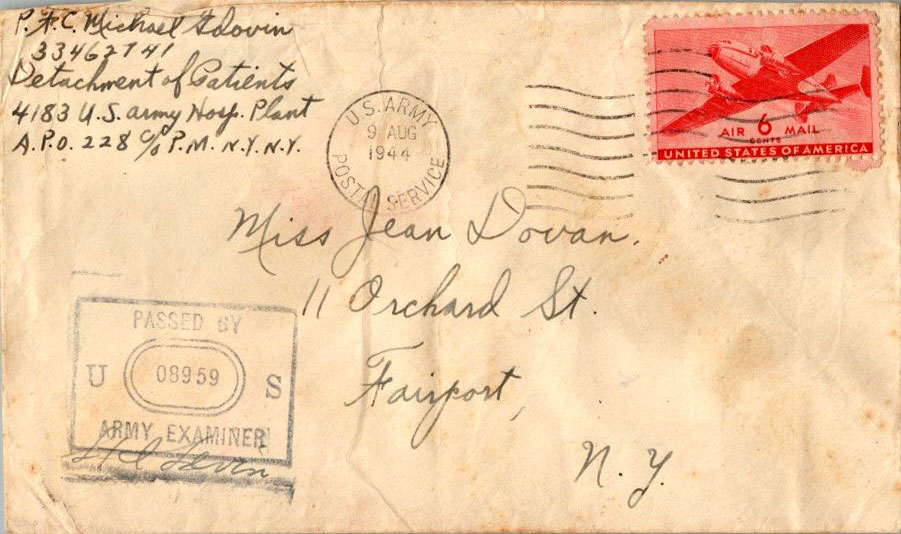 P.F.C. Michael Gdovin
33462741
Detachment of Patients
4183 U.S. army Hosp. Plant
A.P.O. 228 C/o P.M. N.Y. N.Y.
U.S. ARMY
9 AUG
1944
POSTAL SERVICE
AIR 6 MAIL
CENTS
UNITED STATES OF AMERICA
Miss Jean Dovan.
11 Orchard St.
Fairport,
N.Y.
PASSED BY
U 08959 S
ARMY EXAMINER